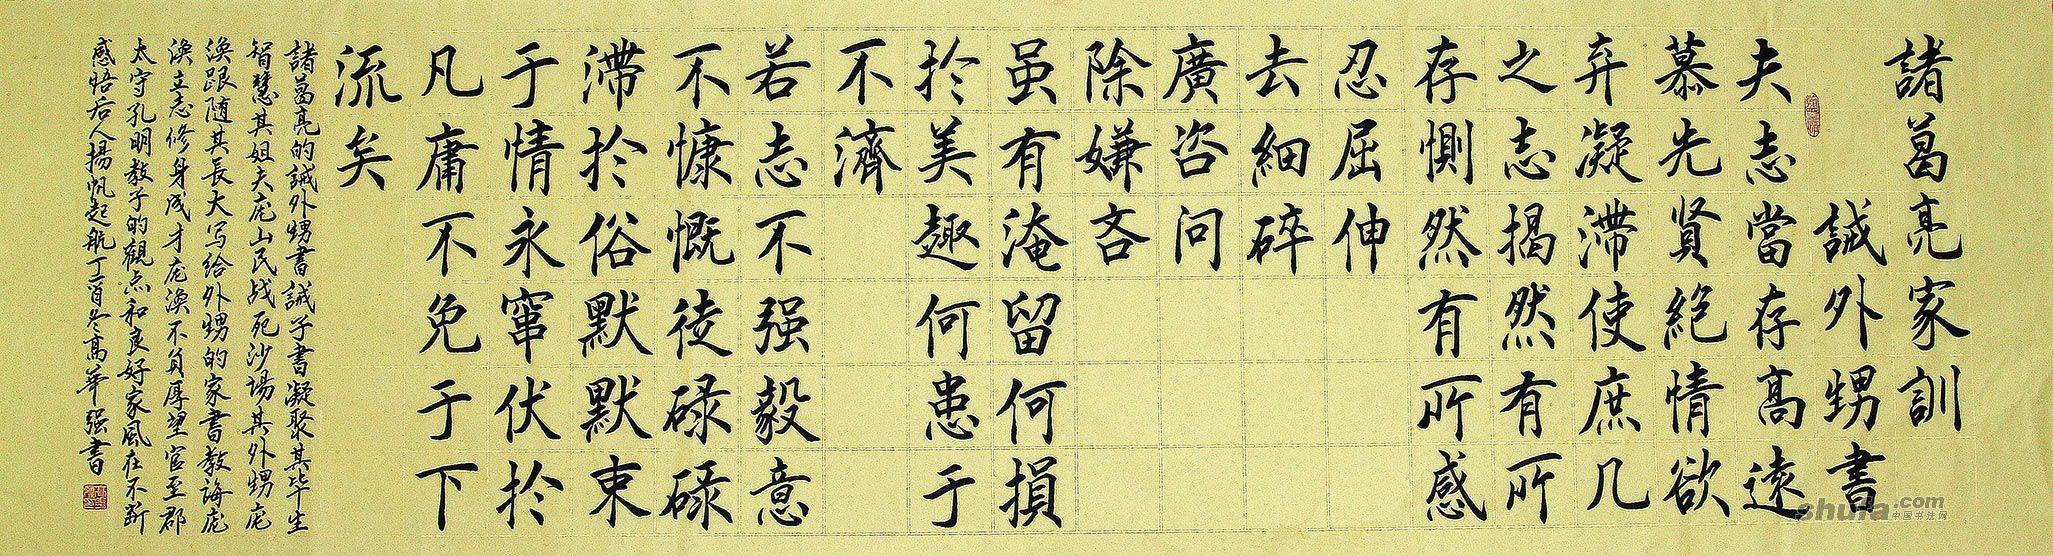 諸葛亮家訓
誡外甥書
夫志當存高遠
慕先賢絕情欲
弃凝滞使庶几
之志揭然有所
存惻然有所感
忍屈伸
去細碎
廣咨问
除嫌吝
虽有淹留何損
於美趣何患于
不濟
若志不强毅意
不慷慨徒碌碌
滞於俗默默束
于情永窜伏於
凡庸不免于下
流矣
諸葛亮的誡外甥書誡子書凝聚其毕生
智慧其姐夫庞山民战死沙場其外甥庞
渙跟随其長大写给外甥的家書教誨庞
渙立志修身成才庞渙不負厚望官至郡
太守孔明教子的觀点和良好家風在不断
感悟后人揚帆起航丁酉冬高華强書
shufa.com
中国书法网